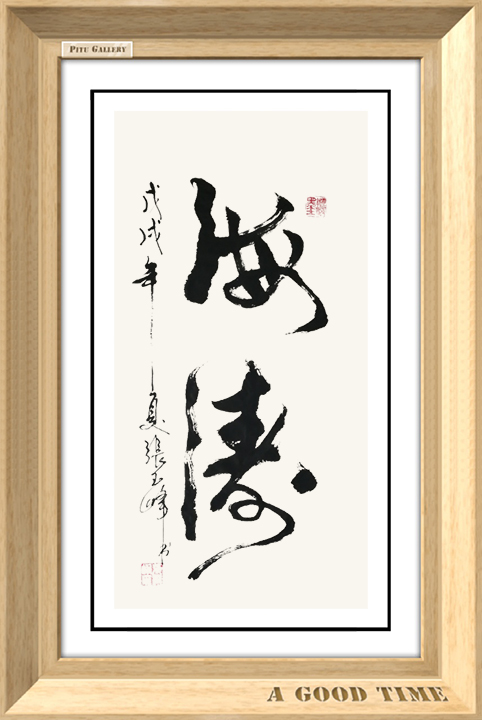 PITU GALLERY
海涛
戊戌年夏張玉峰书
A GOOD TIME